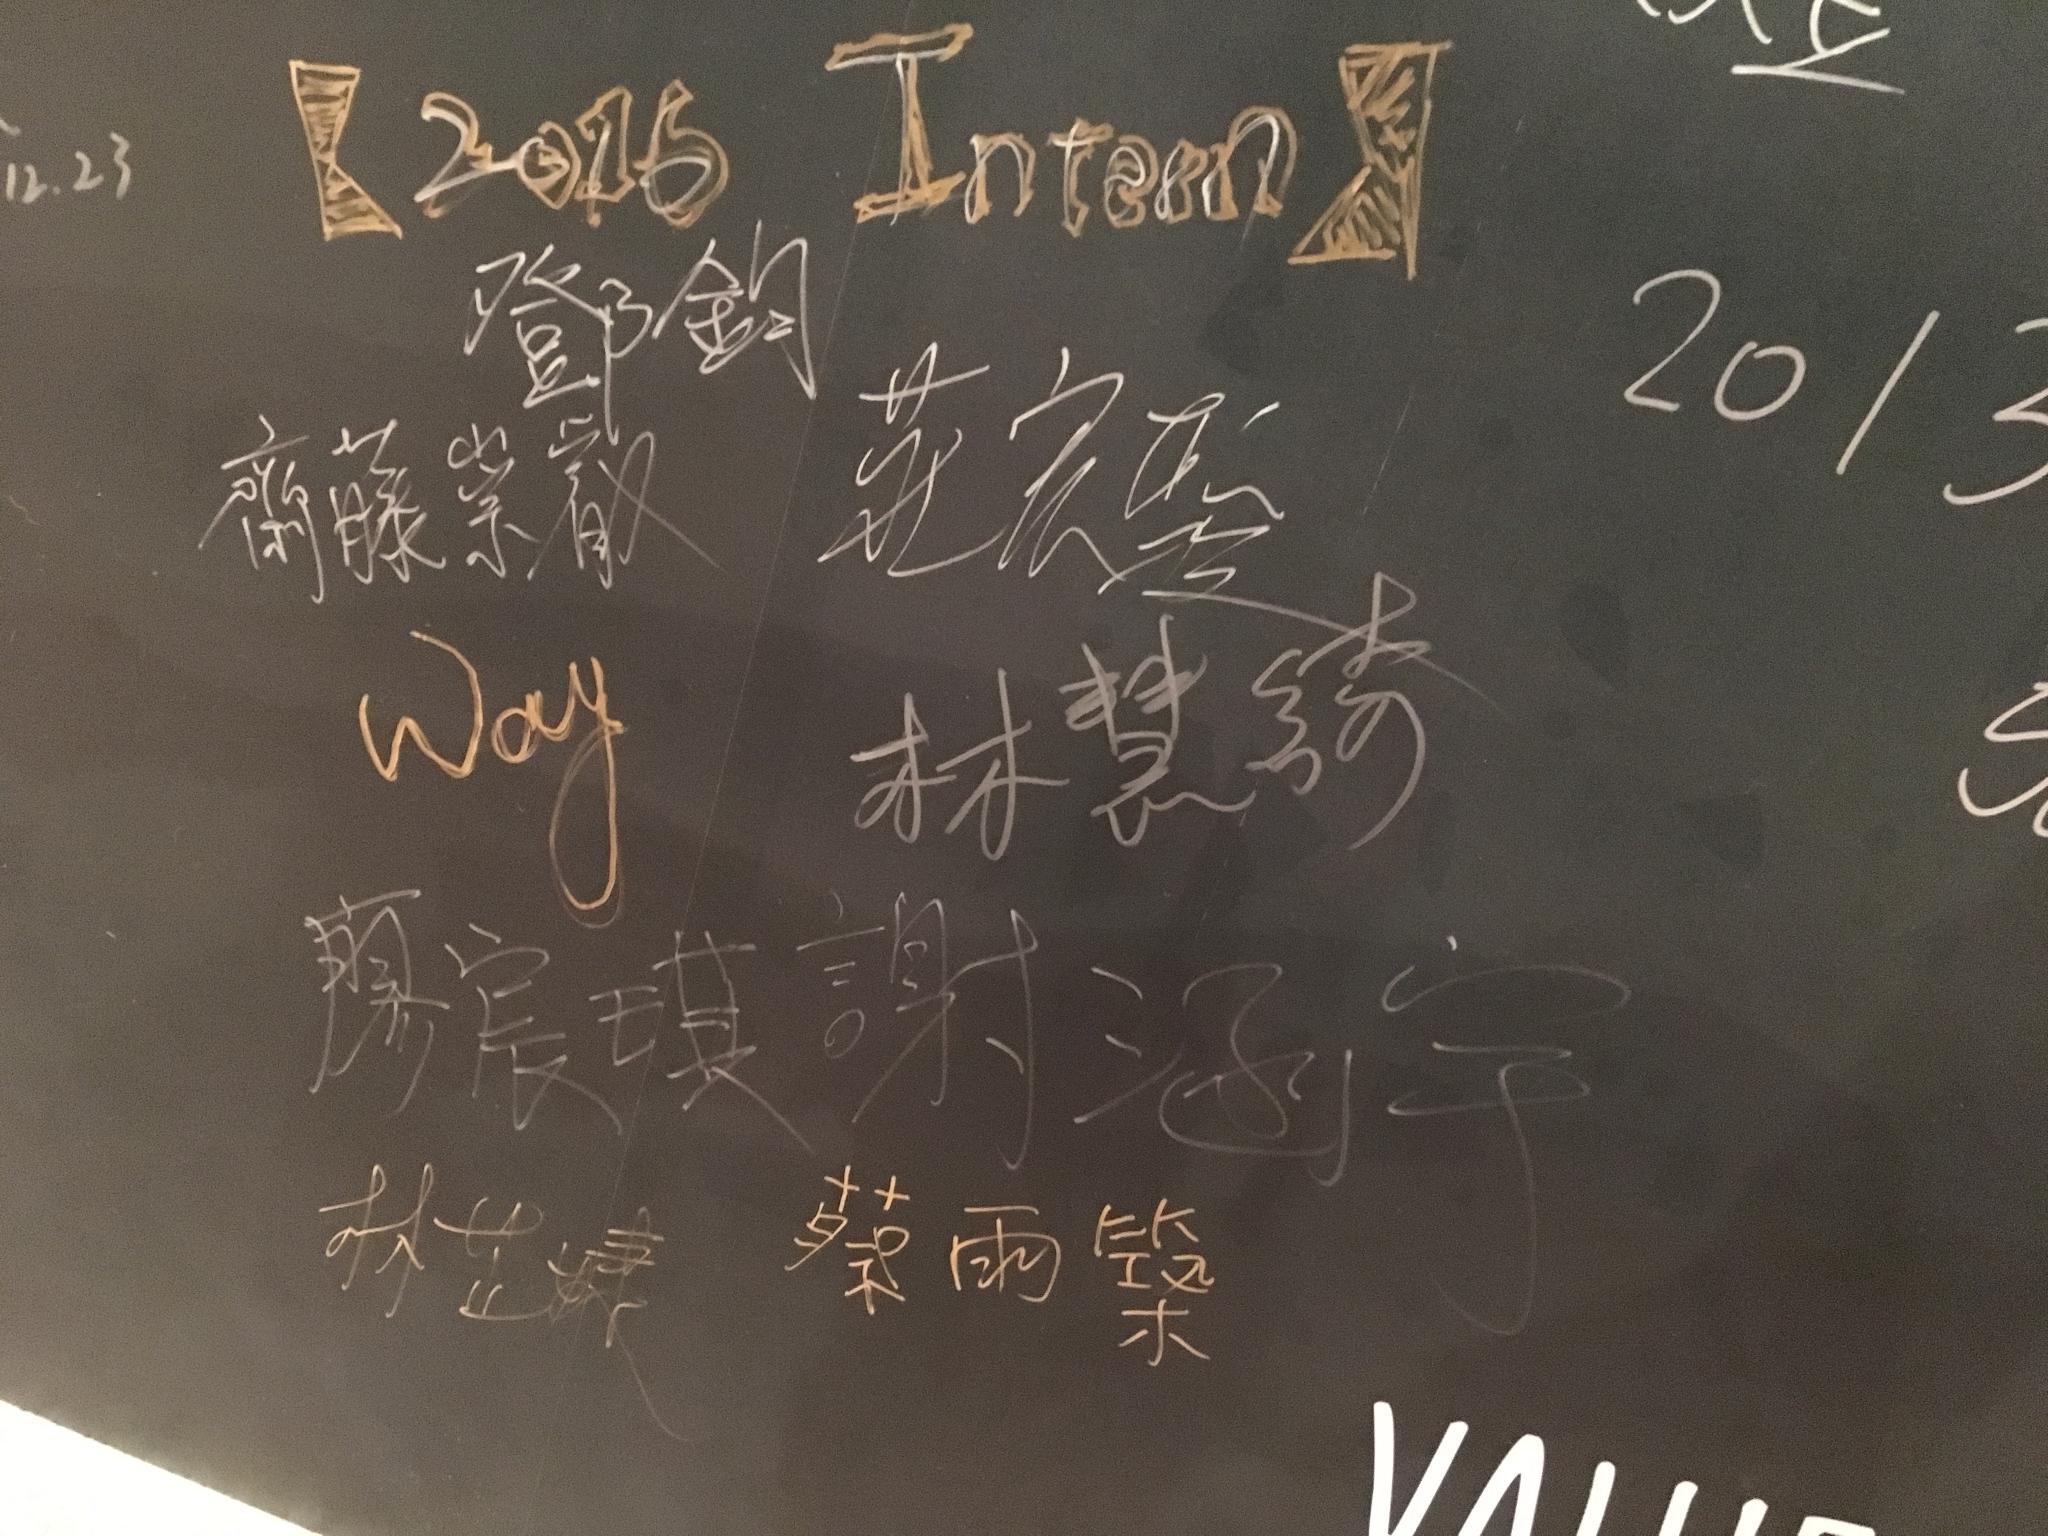 12.23
【2015 Intern】
鄧鈞
齋藤崇叡
莊宸
Way
林慧綺
廖宸琪
謝涵宇
林芷婕
蔡雨縈
201
VALUE